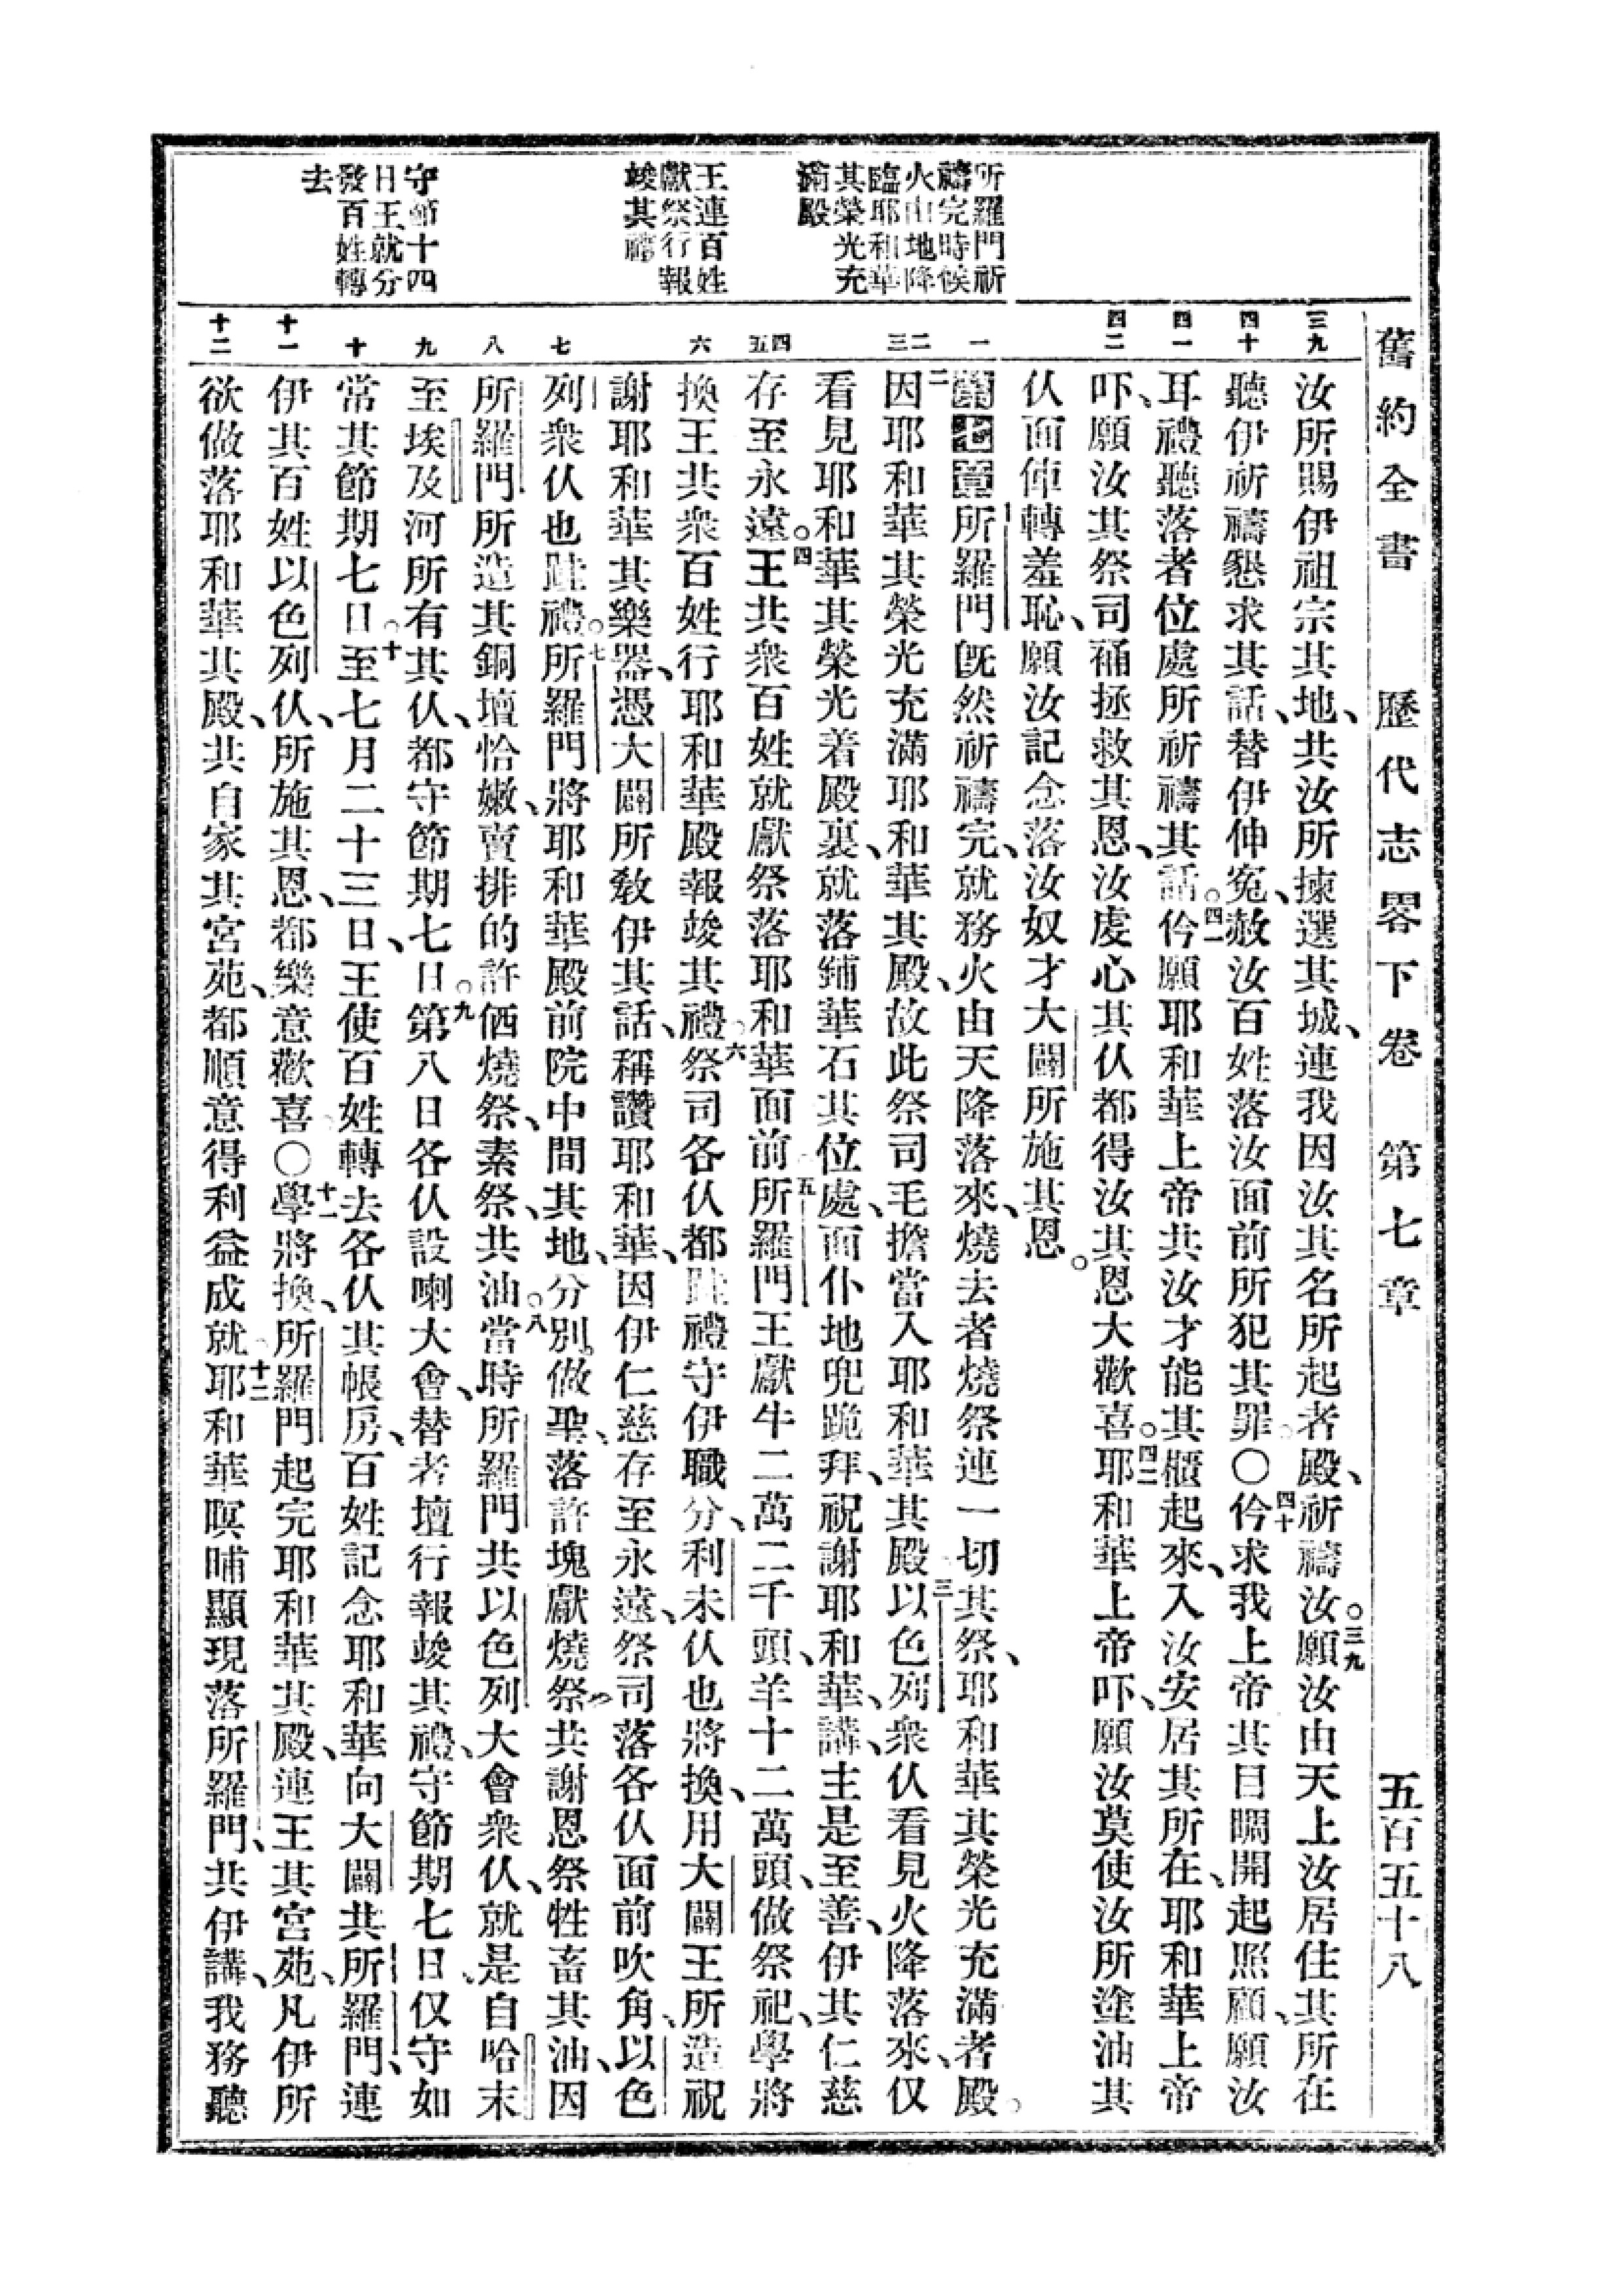 舊約全書 歷代志畧下卷 第七章 五百五十八
所羅門祈
禱完時候
火由地降
臨耶和華
其榮光充
滿殿
王連百姓
獻祭行報
竣其禮
守節十四
日王就分
發百姓轉
去
三九
四十
四一
四二
一
二三
四五
六
七
八
九
十
十一
十二
汝所賜伊祖宗其地、共汝所揀選其城、連我因汝其名所起者殿、祈禱汝。三九願汝由天上汝居住其所在
聽伊祈禱懇求其話、替伊伸冤、赦汝百姓落汝面前所犯其罪〇四十仱求我上帝其目瞯開起照顧、願汝
耳禮聽落者位處所祈禱其話。四一仱願耶和華上帝共汝才能其櫃起來、入汝安居其所在、耶和華上帝
吓、願汝其祭司補拯救其恩、汝虔心其仈都得汝其恩大歡喜。四二耶和華上帝吓、願汝莫使汝所塗油其
仈面俥轉羞恥、願汝記念落汝奴才大闢所施其恩。
第七章所羅門旣然祈禱完、就務火由天降落來、燒去者燒祭連一切其祭、耶和華其榮光充滿者殿。
二因耶和華其榮光充滿耶和華其殿、故此祭司毛擔當入耶和華其殿三以色列衆仈看見火降落來、仅
看見耶和華其榮光着殿裏、就落鋪華石其位處、面仆地兜跪拜、祝謝耶和華、講、主是至善、伊其仁慈
存至永遠。四王共衆百姓就獻祭落耶和華面前。五所羅門王獻牛二萬二千頭、羊十二萬頭、做祭祀、學將
換王共衆百姓行耶和華殿報竣其禮。六祭司各仈都跬禮守伊職分、利未仈也將換、用大闢王所造祝
謝耶和華其樂器、憑大闢所敎伊其話、稱讚耶和華、因伊仁慈存至永遠、祭司落各仈面前吹角、以色
列衆仈也跬禮。七所羅門將耶和華殿前院中間其地、分別做聖、落許塊獻燒祭、共謝恩祭牲畜其油、因
所羅門所造其銅壇恰嫩、賣排的許仴燒祭、素祭、共油。八當時所羅門共以色列大會衆仈、就是自哈末
至埃及河所有其仈、都守節期七日。九第八日各仈設喇大會、替者壇行報竣其禮、守節期七日、仅守如
常其節期七日。十至七月二十三日、王使百姓轉去各仈其帳房、百姓記念耶和華向大闢共所羅門、連
伊其百姓以色列仈、所施其恩、都樂意歡喜〇十一學將換、所羅門起完耶和華其殿、連王其宮苑、凡伊所
欲做落耶和華其殿、共自家其宮苑、都順意得利益成就十二耶和華暝晡顯現落所羅門、共伊講、我務聽